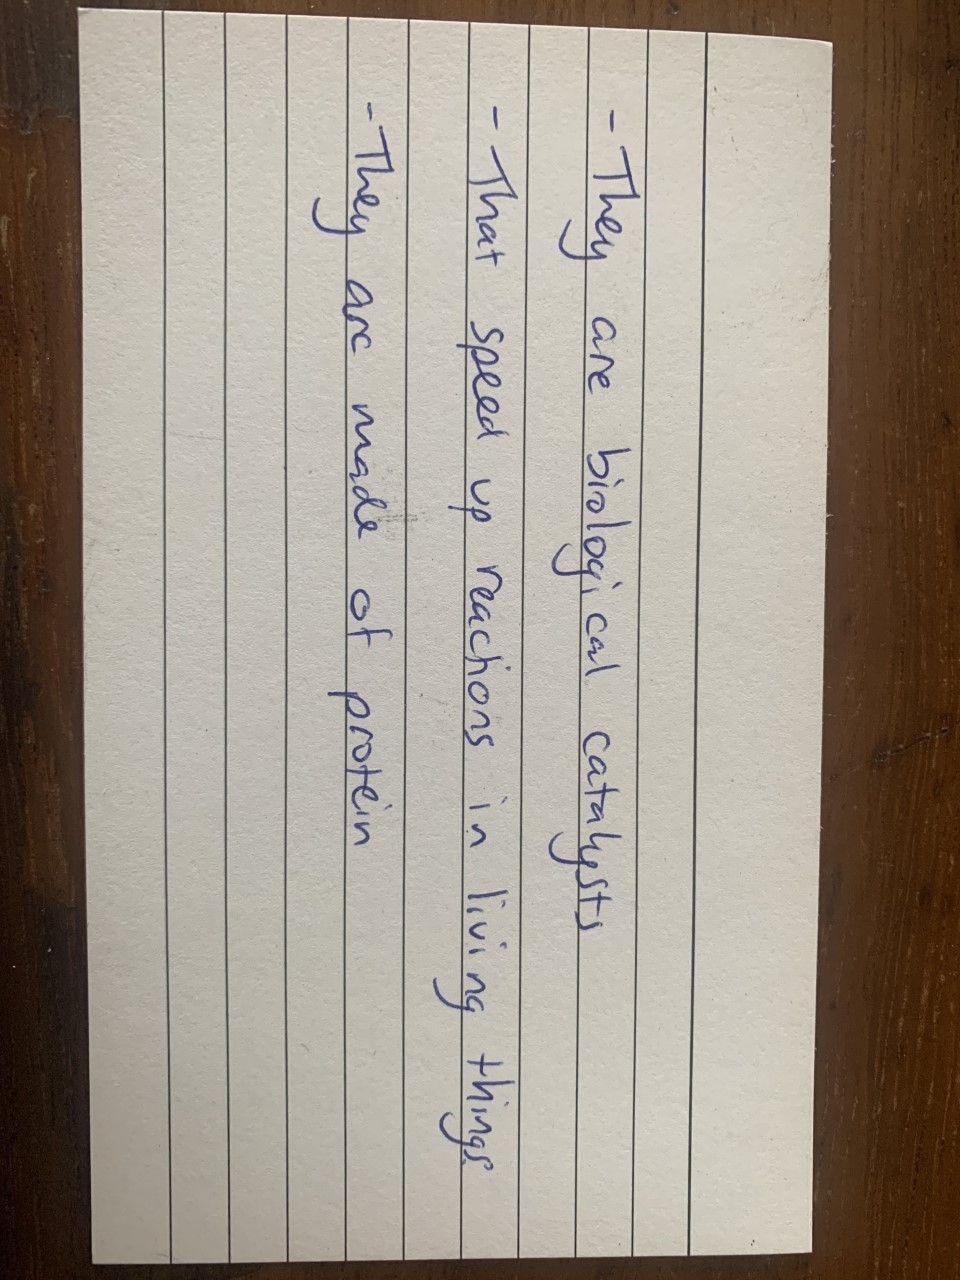 - They are biological catalysts
- That speed up reactions in living things.
- They are made of protein